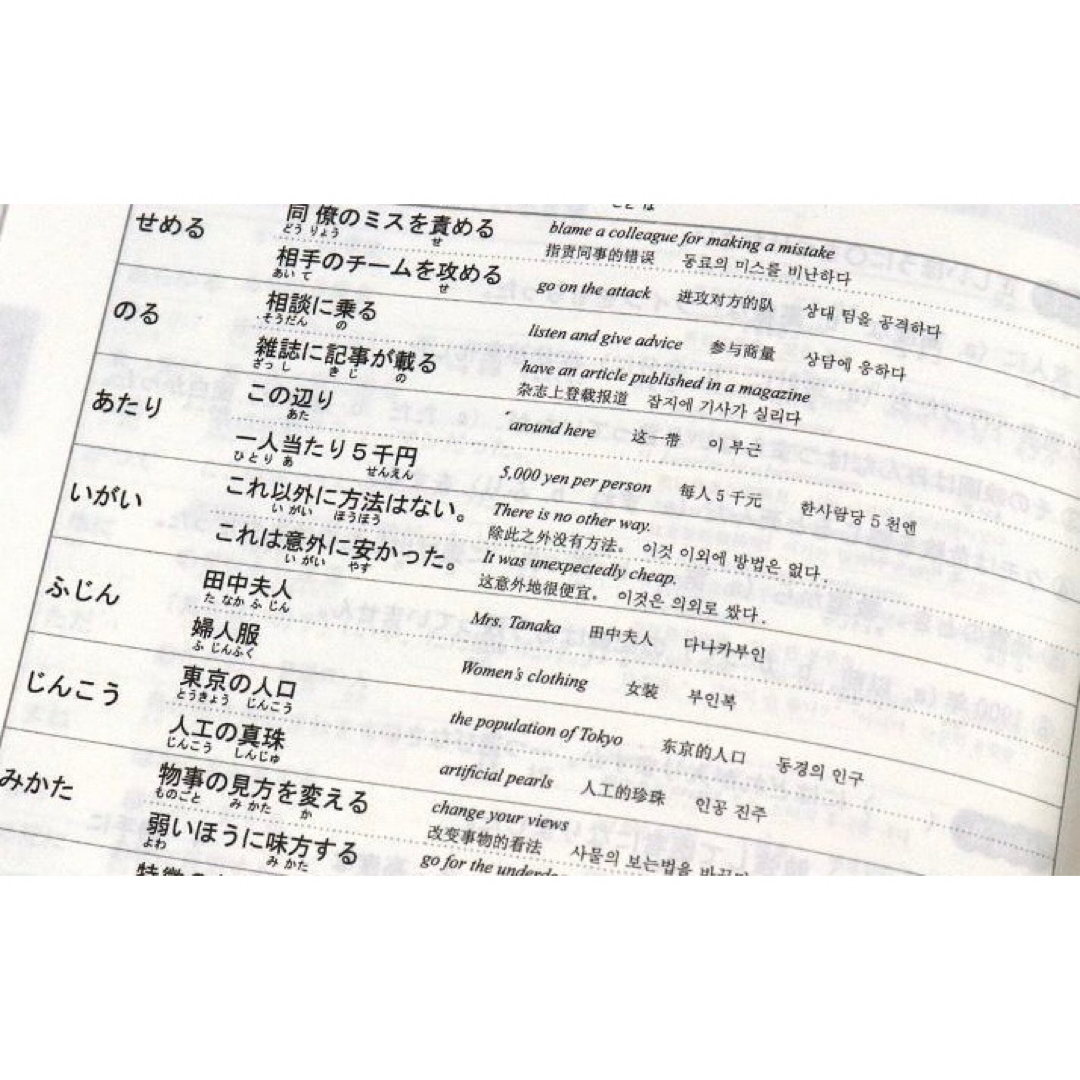 せめる
同僚のミスを責める
どうりょう せ
blame a colleague for making a mistake
指责同事的错误 동료의 미스를 비난하다
相手のチームを攻める
あいて せ
go on the attack 进攻对方的队 상대 팀을 공격하다
のる
相談に乗る
そうだん の
listen and give advice 参与商量 상담에 응하다
雑誌に記事が載る
ざっし きじ の
have an article published in a magazine
杂志上登载报道 잡지에 기사가 실리다
あたり
この辺り
あた
around here 这一带 이 부근
一人当たり5千円
ひとり あ せんえん
5,000 yen per person 每人5千元 한사람당 5천엔
いがい
これ以外に方法はない。
いがい ほうほう
There is no other way.
除此之外没有方法。 이것 이외에 방법은 없다.
これは意外に安かった。
いがい やす
It was unexpectedly cheap.
这意外地很便宜。 이것은 의외로 쌌다.
ふじん
田中夫人
たなかふじん
Mrs. Tanaka 田中夫人 다나카부인
婦人服
ふじんふく
Women's clothing 女裝 부인복
じんこう
東京の人口
とうきょう じんこう
the population of Tokyo 东京的人口 동경의 인구
人工の真珠
じんこう しんじゅ
artificial pearls 人工的珍珠 인공 진주
みかた
物事の見方を変える
ものごと みかた か
change your views
改变事物的看法 사물의 보는법을
弱いほうに味方する
よわ みかた
go for the